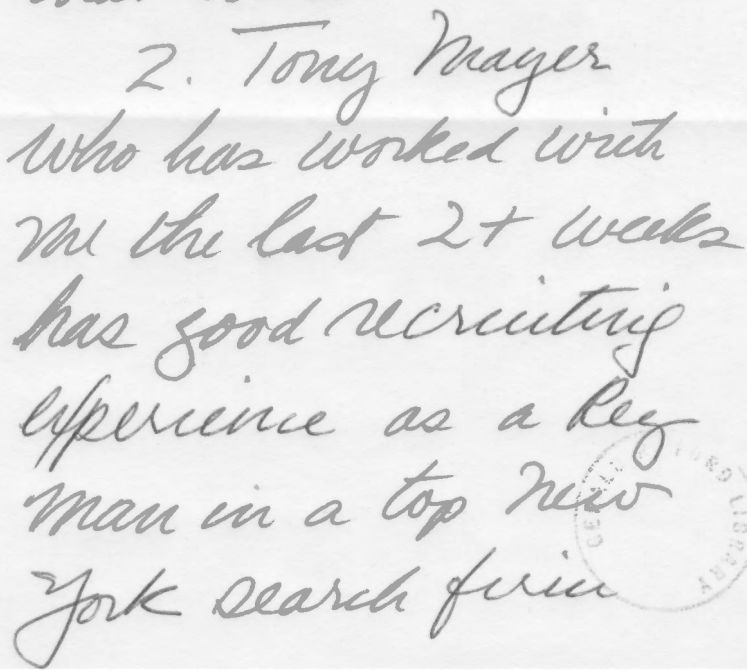 2. Tony Mayer
who has worked with
me the last 2+ weeks
has good recruiting
experience as a key
man in a top New
York search firm
GERALD R. FORD LIBRARY